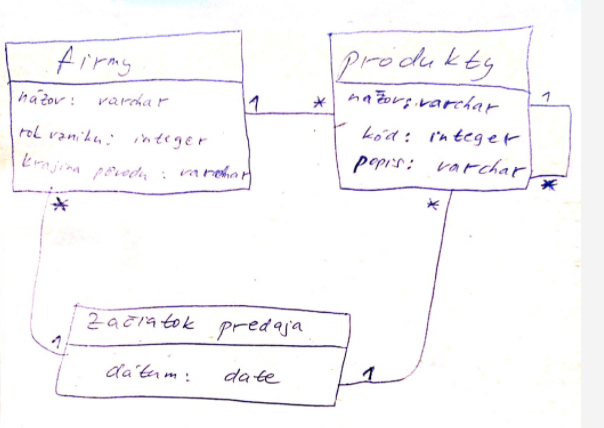 firmy
názov: varchar
rok vzniku: integer
krajina pôvodu: varchar
1
*
produkty
názov: varchar
kód: integer
popis: varchar
1
*
*
*
Začiatok predaja
dátum: date
1
1